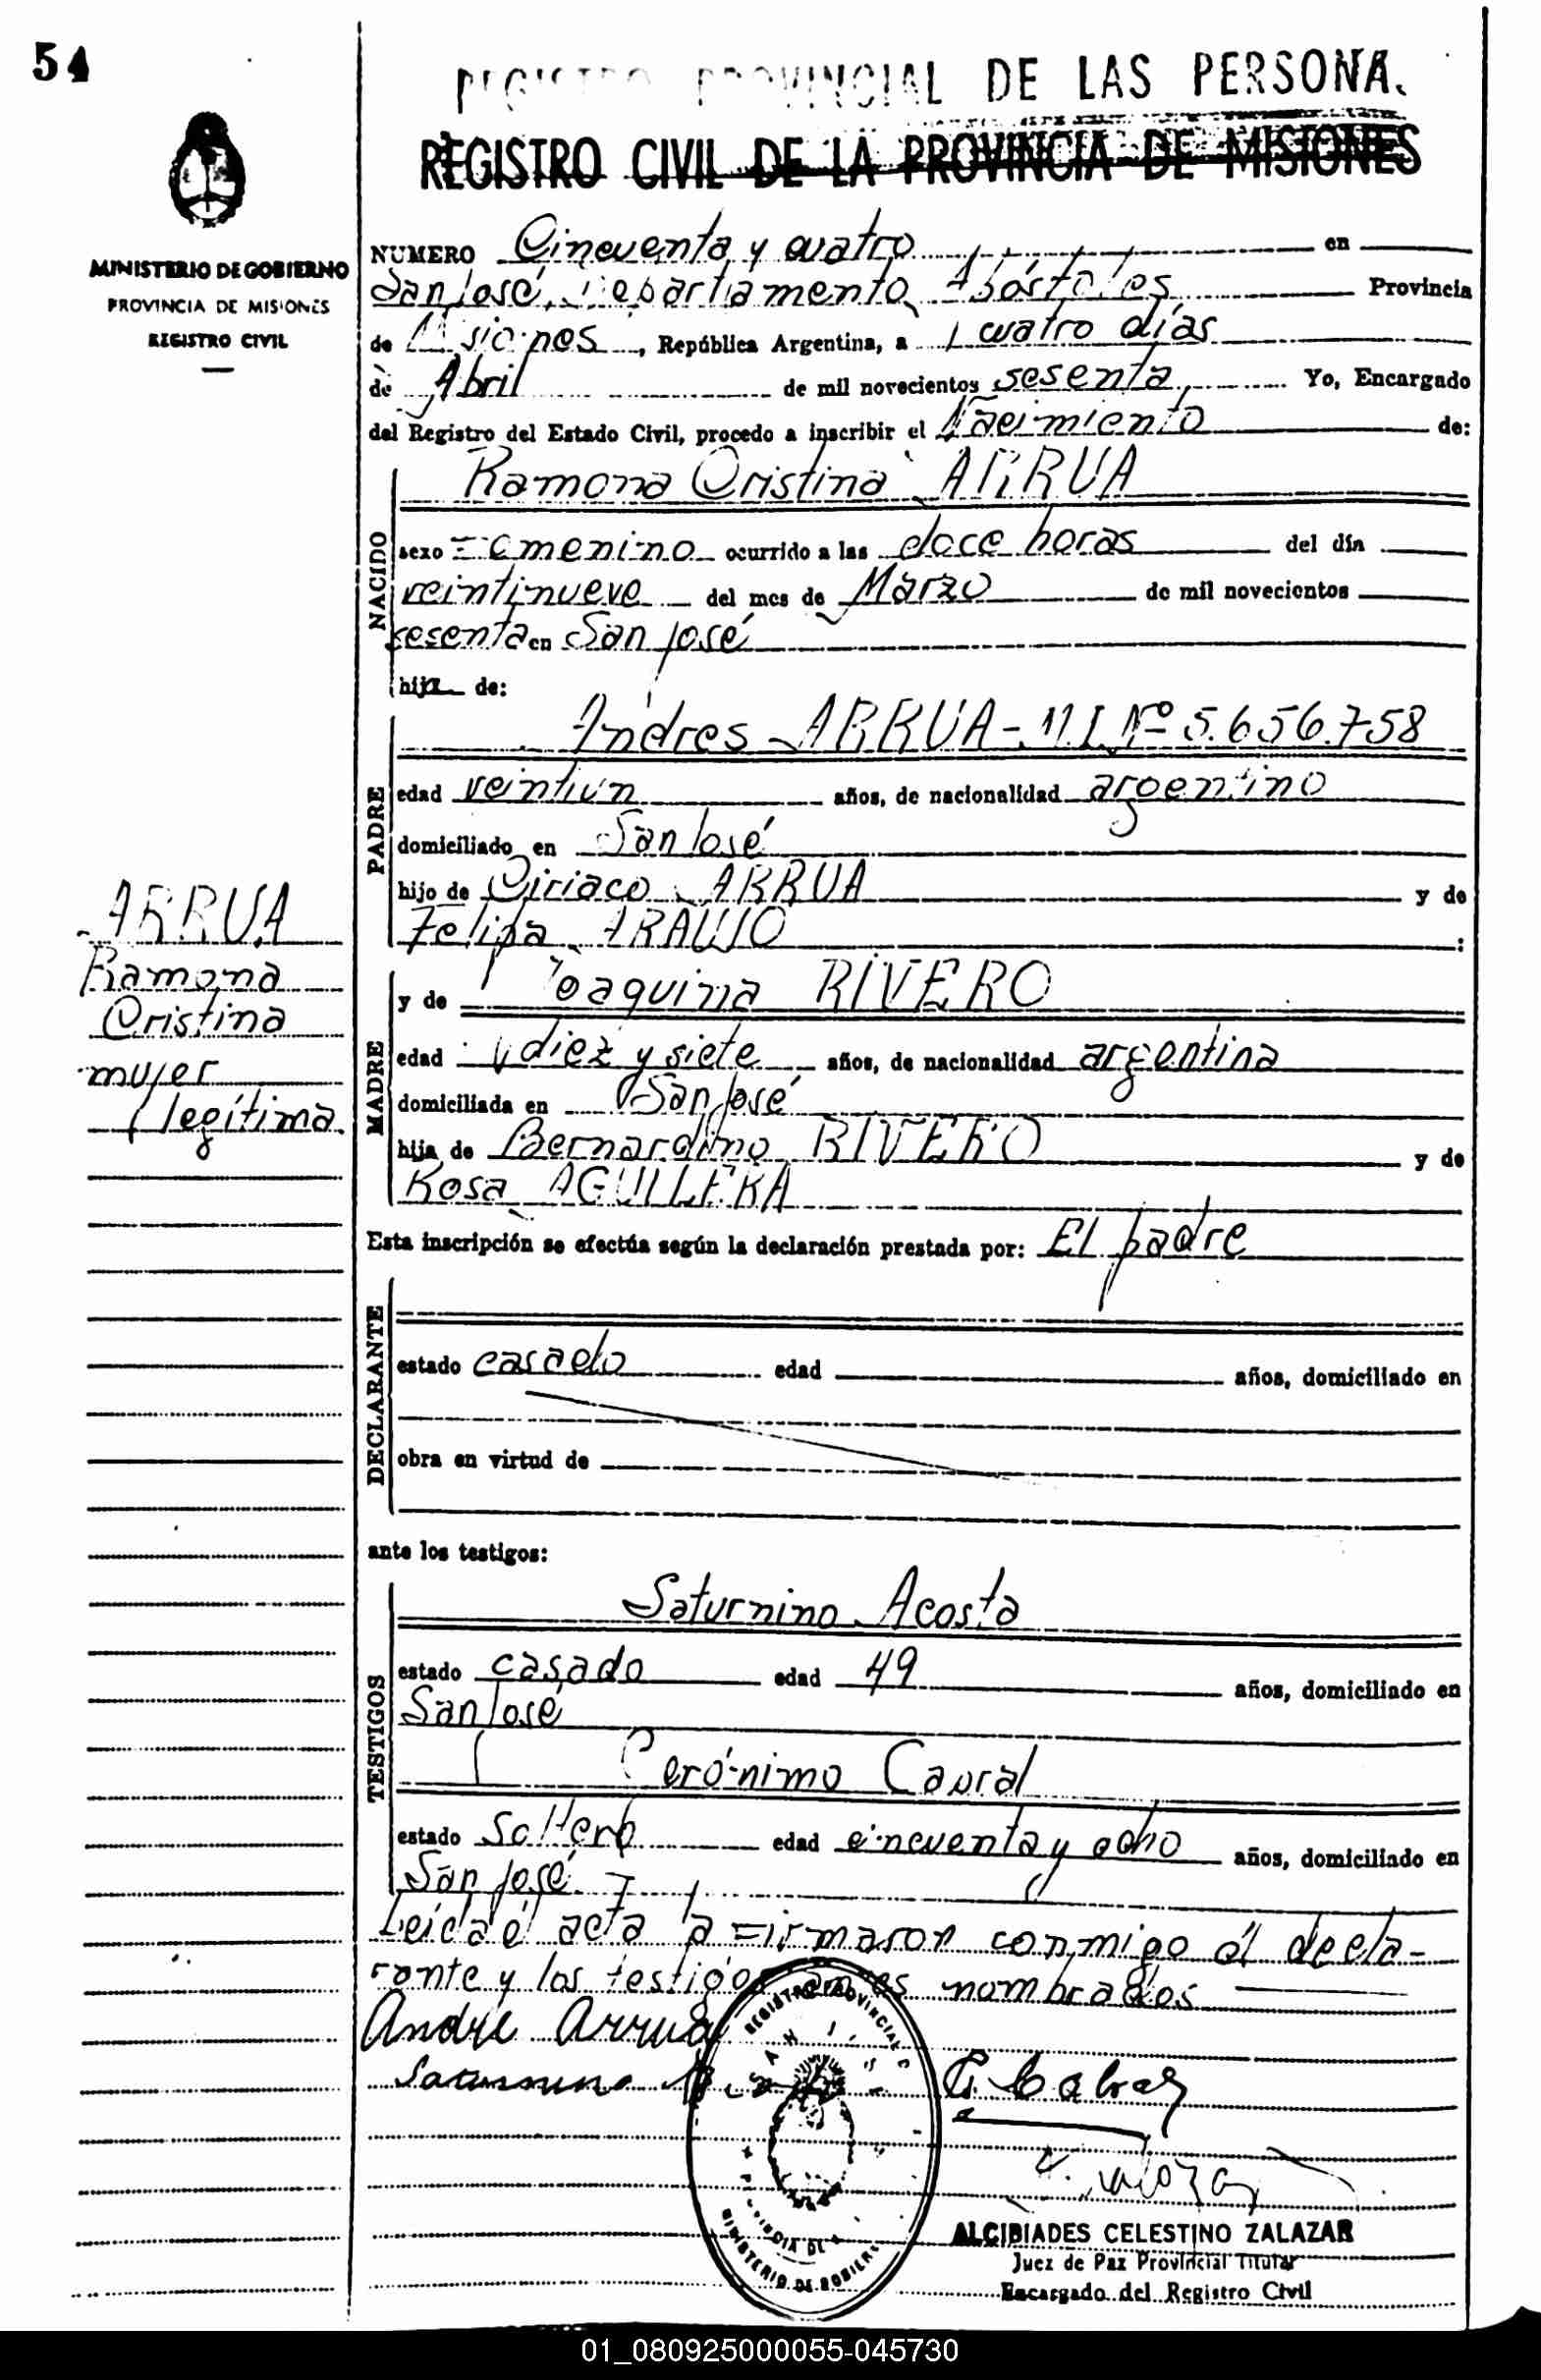 54
REGISTRO PROVINCIAL DE LAS PERSONA
REGISTRO CIVIL DE LA PROVINCIA DE MISIONES
MINISTERIO DE GOBIERNO
PROVINCIA DE MISIONES
REGISTRO CIVIL
NUMERO Cincuenta y cuatro en
San José, Departamento Apóstoles Provincia
de Misiones, República Argentina, a cuatro días
de Abril de mil novecientos sesenta Yo, Encargado
del Registro del Estado Civil, procedo a inscribir el Nacimiento de:
NACIDO
Ramona Cristina ARRUA
sexo Femenino ocurrido a las doce horas del día
veintinueve del mes de Marzo de mil novecientos
sesenta en San José
hija de:
PADRE
Andres ARRUA - M.I. Nº 5.656.758
edad veintiun años, de nacionalidad argentino
domiciliado en San José
hijo de Ciriaco ARRUA y de
Felipa ARAUJO :
MADRE
y de Joaquina RIVERO
edad diez y siete años, de nacionalidad argentina
domiciliada en San José
hija de Bernardino RIVERO y de
Rosa AGUILERA
ARRUA
Ramona
Cristina
mujer
legítima
Esta inscripción se efectúa según la declaración prestada por: El padre
DECLARANTE
estado casado edad años, domiciliado en
obra en virtud de
ante los testigos:
TESTIGOS
Saturnino Acosta
estado casado edad 49 años, domiciliado en
San José
Gerónimo Cabral
estado Soltero edad cincuenta y ocho años, domiciliado en
San José.
Leída el acta la firmaron conmigo él decla-
rante y los testigos antes nombrados
Andre Arrua
Saturnino Acosta G. Cabral
REGISTRO PROVINCIAL
MINISTERIO DE GOBIERNO
ALCIBIADES CELESTINO ZALAZAR
Juez de Paz Provincial Titular
Encargado del Registro Civil
01_080925000055-045730